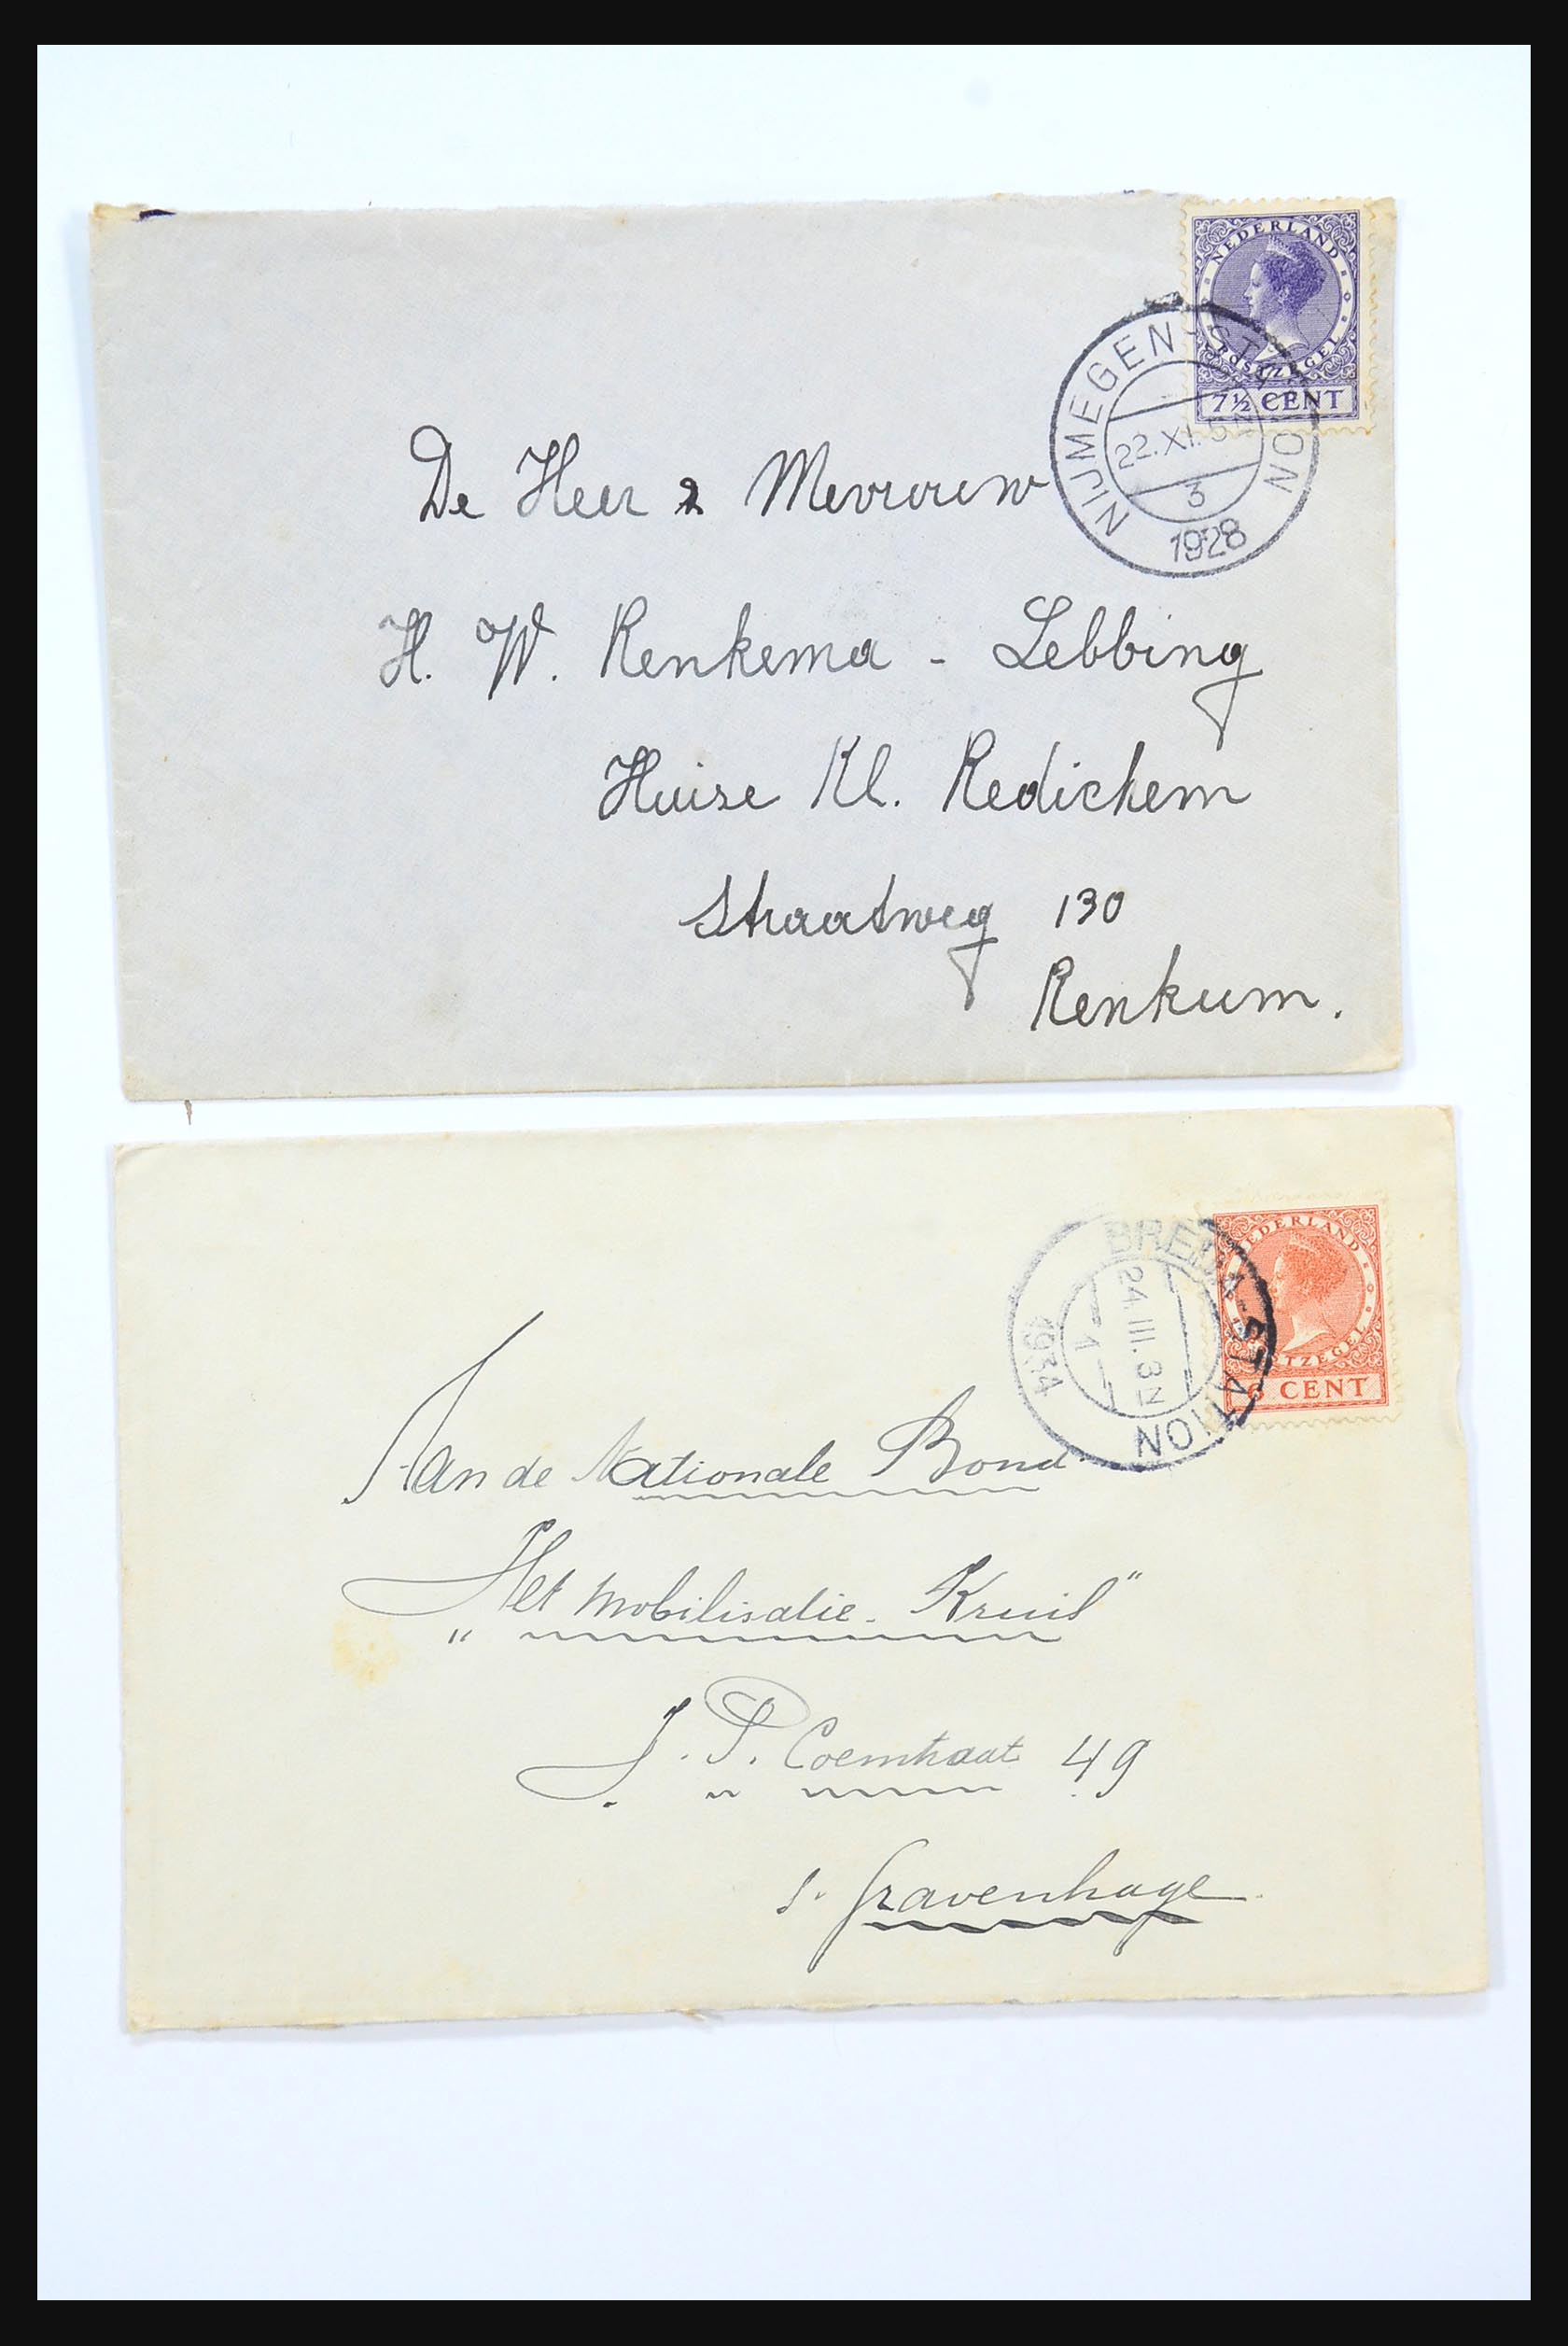 NEDERLAND
POSTZEGEL
7½ CENT
NIJMEGEN-STATION
22.XI.5N
3
1928
De Heer & Mevrouw
H. W. Renkema - Lebbing
Huize Kl. Redichem
Straatweg 130
Renkum.
NEDERLAND
POSTZEGEL
6 CENT
BREDA-STATION
24.III.3N
1
1934
Aan de Nationale Bond
"Het Mobilisatie-Kruis"
J. P. Coenstraat 49
s. Gravenhage